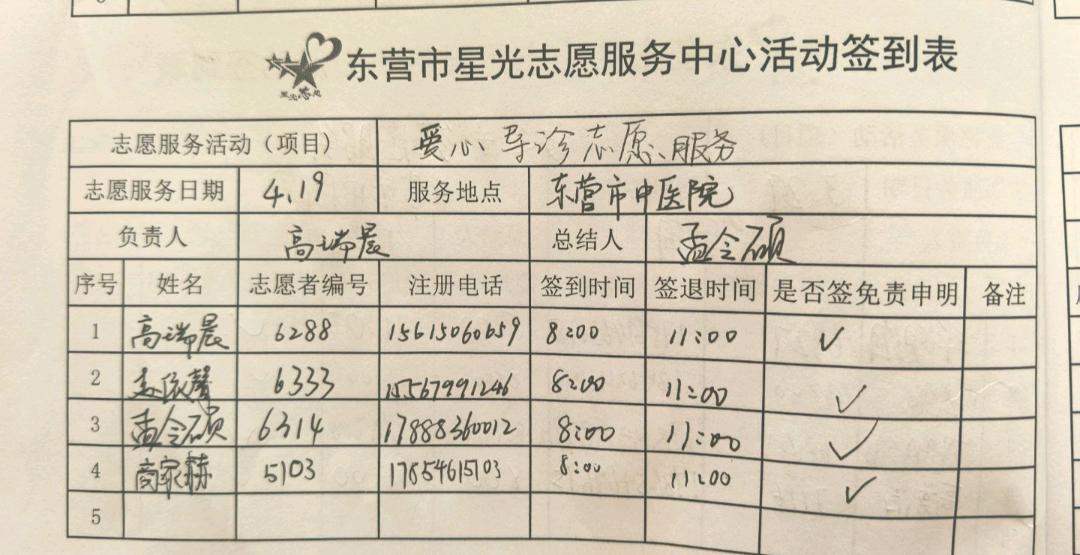 东营市星光志愿服务中心活动签到表
志愿服务活动（项目） 爱心导诊志愿服务
志愿服务日期 4.19 服务地点 东营市中医院
负责人 高瑞晨 总结人 孟令硕
序号 姓名 志愿者编号 注册电话 签到时间 签退时间 是否签免责申明 备注
1 高瑞晨 6288 15615060659 8:00 11:00 ✓
2 6333 15567991246 8:00 11:00 ✓
3 孟令硕 6314 17888360012 8:00 11:00 ✓
4 商家赫 5103 17854615703 8:00 11:00 ✓
5